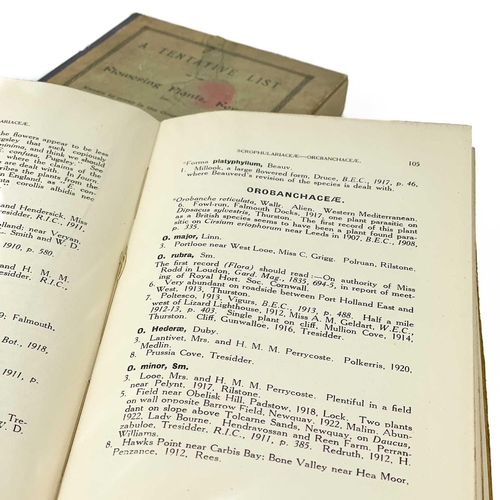 A TENTATIVE LIST
Flowering Plants,
LARIACEÆ.
he flowers appear to be less
gsley that such copiously
minima, and think we should
C. confusa, Pugsley."
where the claims of the
dealt with. In Journ.
cribes the plants from the
England, as "E.
ta corollis albidis nec
and Hendersick. Miss
Tresidder, R.I.C., 1911,
lland; near Veryan.
Smith and W. D.
1910, p. 580.
and H. M. M.
Tresidder, R.I.C.,
9; Falmouth,
Bot., 1918,
1911, p.
Tre-
W. D.
SCROPHULARIACEÆ—OROBANCHACEÆ. 105
"Forma platyphyllum, Beauv.
Millook, a large flowered form, Druce, B.E.C., 1917, p. 46,
where Beauverd's revision of the species is dealt with.
OROBANCHACEÆ.
"Orobanche reticulata, Walls. Alien. Western Mediterranean.
6. Fowl-run, Falmouth Docks, 1917, one plant parasitic on
Dipsacus sylvestris, Thurston. The first record of this plant
as a British species seems to have been a plant found para-
sitic on Cirsium eriophorum near Leeds in 1907, B.E.C., 1908,
p. 335.
O. major, Linn.
3. Portlooe near West Looe, Miss C. Grigg. Polruan, Rilstone.
O. rubra, Sm.
The first record (Flora) should read:—On authority of Miss
Rodd in Loudon, Gard. Mag., 1835, 694-5, in report of meet-
ing of Royal Hort. Soc. Cornwall.
6. Very abundant on roadside between Port Holland East and
West, 1913, Thurston.
7. Poltesco, 1913, Vigurs, B.E.C., 1913, p. 488. Half a mile
west of Lizard Lighthouse, 1912, Miss A. M. Geldart, W.E.C.
1912-13, p. 403. Single plant on cliff, Mullion Cove, 1914,
Thurston. Cliff, Gunwalloe, 1916, Tresidder.
O. Hederæ, Duby.
3. Lantivet, Mrs. and H. M. M. Perrycoste. Polkerris, 1920,
Medlin.
8. Prussia Cove, Tresidder.
O. minor, Sm.
3. Looe, Mrs. and H. M. M. Perrycoste. Plentiful in a field
near Pelynt, 1917, Rilstone.
5. Field near Obelisk Hill, Padstow, 1918, Lock. Two plants
on wall opposite Barrow Field, Newquay, 1922, Malim. Abun-
dant on slope above Tolcarne Sands, Newquay, on Daucus,
1922, Lady Bourne. Hendravossan and Reen Farm, Perran-
zabuloe, Tresidder, R.I.C., 1911, p. 385. Redruth, 1912, H.
Williams.
8. Hawks Point near Carbis Bay: Bone Valley near Hea Moor,
Penzance, 1912, Rees.